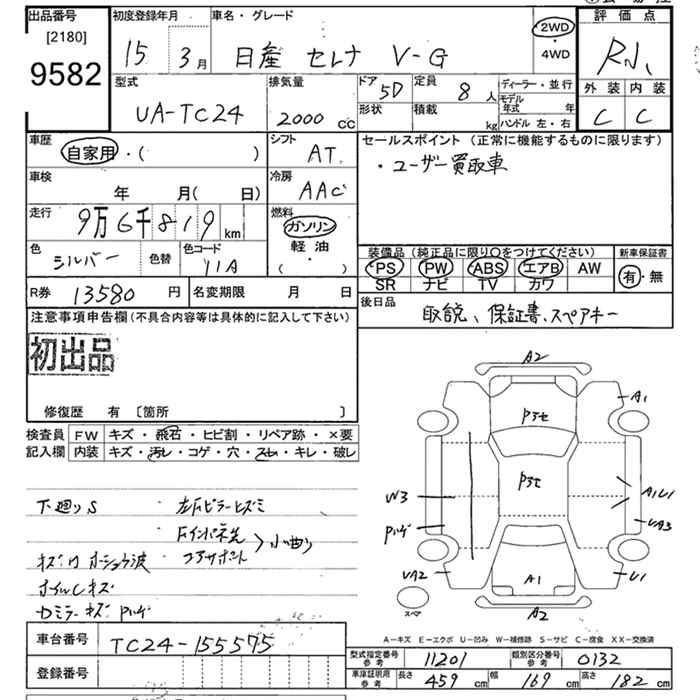 出品番号 [2180] 9582
初度登録年月 15 3月
車名・グレード 日産 セレナ V-G
2WD・4WD
評価点
外装 内装
C C
型式 UA-TC24
排気量 2000 cc
ドア 5D
定員 8人
形状 積載 kg
ディーラー・並行
モデル年式 年
ハンドル 左・右
車歴 自家用・( )
シフト AT
セールスポイント (正常に機能するものに限ります)
・ユーザー買取車
車検 年 月( 日)
冷房 AAC
走行 9万6千819 km
燃料 ガソリン 軽油 ( ・ )
色 シルバー
色替
色コード 11A
装備品 (純正品に限り○をつけてください)
新車保証書
PS PW ABS エアB AW
有・無
SR ナビ TV カワ
R券 13580 円
名変期限 月 日
後日品 取説、保証書、スペアキー
注意事項申告欄 (不具合内容等は具体的に記入して下さい)
初出品
修復歴 有 〔箇所 〕
検査員 FW キズ・飛石・ヒビ割・リペア跡・×要
記入欄 内装 キズ・汚レ・コゲ・穴・スレ・キレ・破レ
下廻りS
小曲り
A2
A1
P3セ
P3セ
W3
A1U1
UA3
UA2
A1
U1
A2
スペア
A-キズ E-エクボ U-凹み W-補修跡 S-サビ C-腐食 XX-交換済
車台番号 TC24-155575
登録番号
型式指定番号 参考 11201
類別区分番号 参考 0132
車庫証明用 参考 長さ 459 cm 幅 169 cm 高さ 182 cm